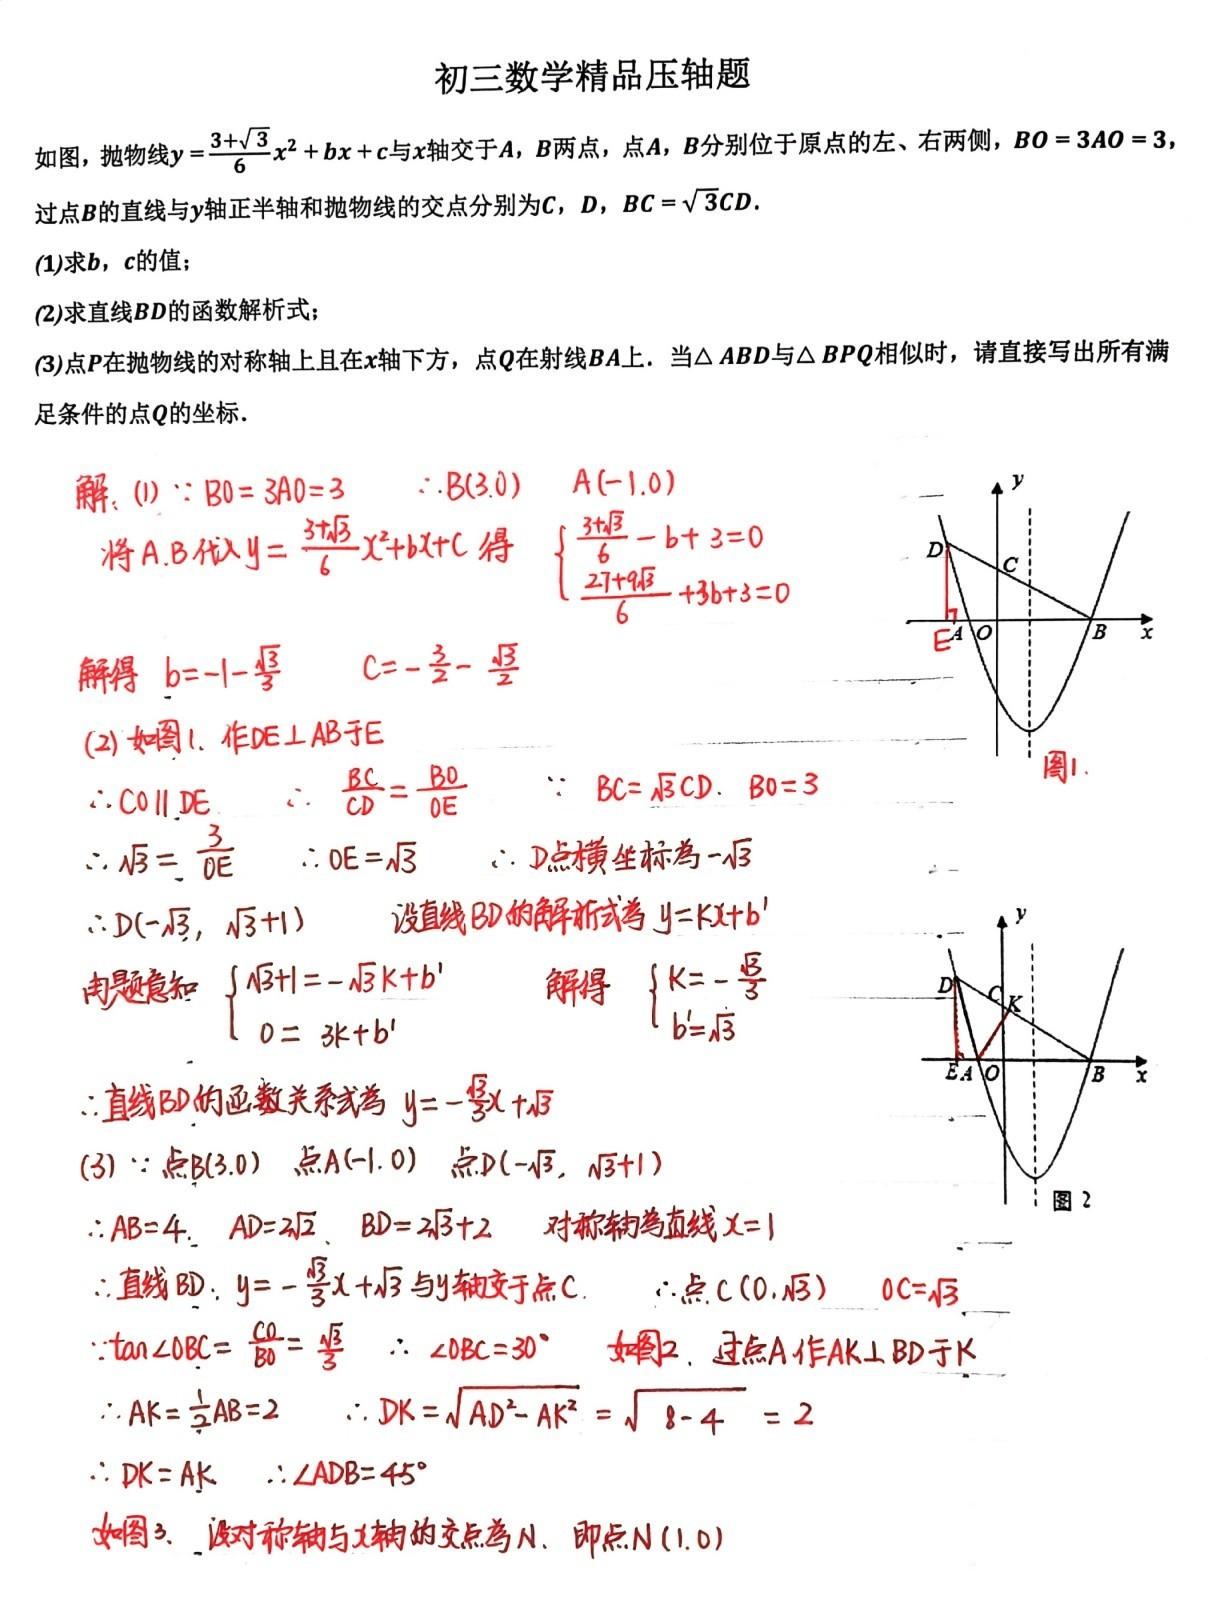 初三数学精品压轴题
如图，抛物线y=\frac{3+√3}{6}x²+bx+c与x轴交于A，B两点，点A，B分别位于原点的左、右两侧，BO=3AO=3，
过点B的直线与y轴正半轴和抛物线的交点分别为C，D，BC=√3CD．
(1)求b，c的值；
(2)求直线BD的函数解析式；
(3)点P在抛物线的对称轴上且在x轴下方，点Q在射线BA上．当△ABD与△BPQ相似时，请直接写出所有满
足条件的点Q的坐标．
解：(1) ∵ BO=3AO=3 ∴B(3.0) A(-1.0)
将A.B代入y=\frac{3+√3}{6}x²+bx+c 得 { \frac{3+√3}{6}-b+3=0
\frac{27+9√3}{6}+3b+3=0
解得 b=-1-\frac{√3}{3} C=-\frac{3}{2}-\frac{√3}{2}
(2) 如图1、作DE⊥AB于E
∴CO∥DE ∴ \frac{BC}{CD}=\frac{BO}{OE} ∵ BC=√3CD. BO=3
∴√3=\frac{3}{OE} ∴OE=√3 ∴D点横坐标为-√3
∴D(-√3, √3+1) 设直线BD的解析式为 y=kx+b'
由题意知 { √3+1=-√3k+b'
0=3k+b'
解得 { k=-\frac{√3}{3}
b'=√3
∴直线BD的函数关系式为 y=-\frac{√3}{3}x+√3
(3) ∵点B(3.0) 点A(-1.0) 点D(-√3, √3+1)
∴AB=4. AD=2√2、 BD=2√3+2 对称轴为直线x=1
∴直线BD：y=-\frac{√3}{3}x+√3与y轴交于点C. ∴点C(0.√3) OC=√3
∵tan∠OBC=\frac{CO}{BO}=\frac{√3}{3} ∴ ∠OBC=30° 如图2、过点A作AK⊥BD于K
∴AK=\frac{1}{2}AB=2 ∴DK=√{AD²-AK²}=√{8-4}=2
∴DK=AK ∴∠ADB=45°
如图3、设对称轴与x轴的交点为N、即点N(1.0)
y
D
C
E
A
O
B
x
图1.
y
D
C
K
E
A
O
B
x
图2